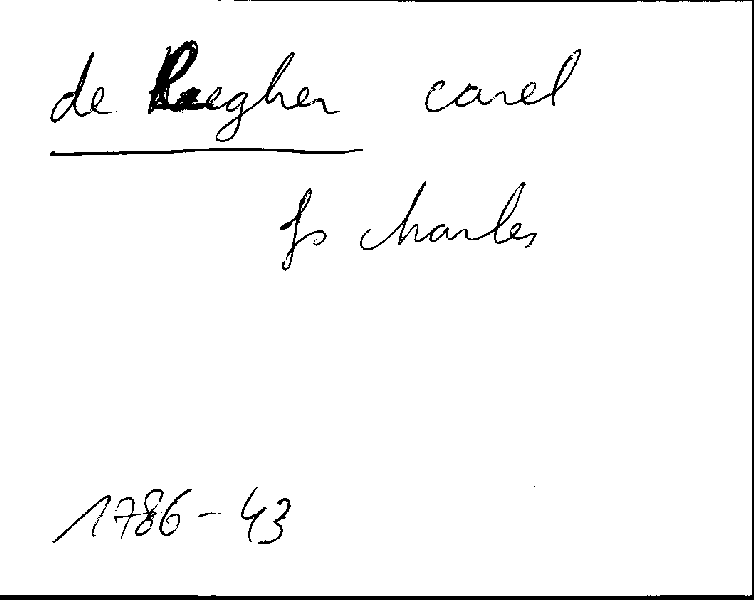 de Reegher carel
fs charles
1786-43